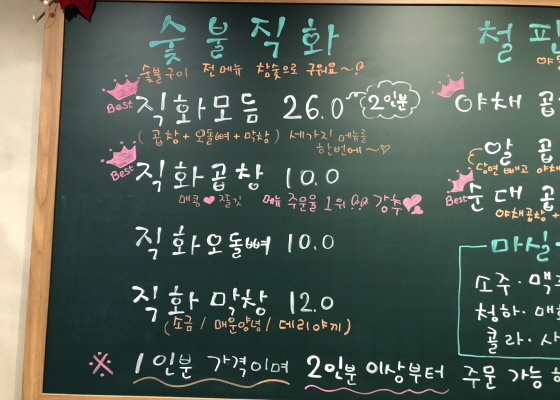 숯불직화
숯불구이 전메뉴 참숯으로 구워요~!?
Best 직화모듬 26.0 ~ 2인분
(곱창+오돌뼈+막창) 세가지 메뉴를
한번에~♡
Best 직화곱창 10.0
매콤♥쫄깃 메뉴 주문율 1위!?! 강추♥
직화오돌뼈 10.0
직화막창 12.0
(소금/매운양념/데리야끼)
※ 1인분 가격이며 2인분 이상부터 주문 가능
철판
야채 곱
알 곱
당면 빼고 야채
Best 순대 곱
야채곱창+
마실
소주·맥
청하·매
콜라·사